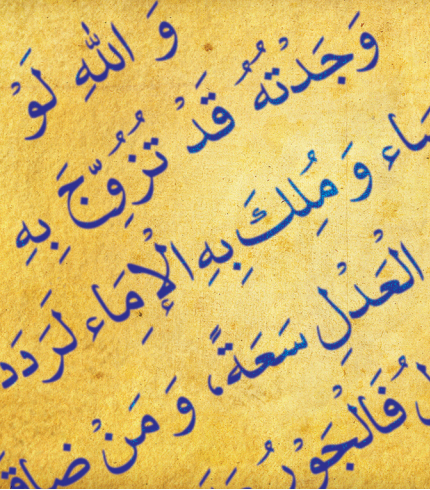 وَ اللّٰهِ لَوْ
وَجَدْتُهُ قَدْ تُزُوِّجَ بِهِ
وَ مُلِكَ بِهِ الْإِمَاءُ لَرَدَد
الْعَدْلِ سَعَةً، وَ مَنْ ضاق
فَالْجَوْرُ